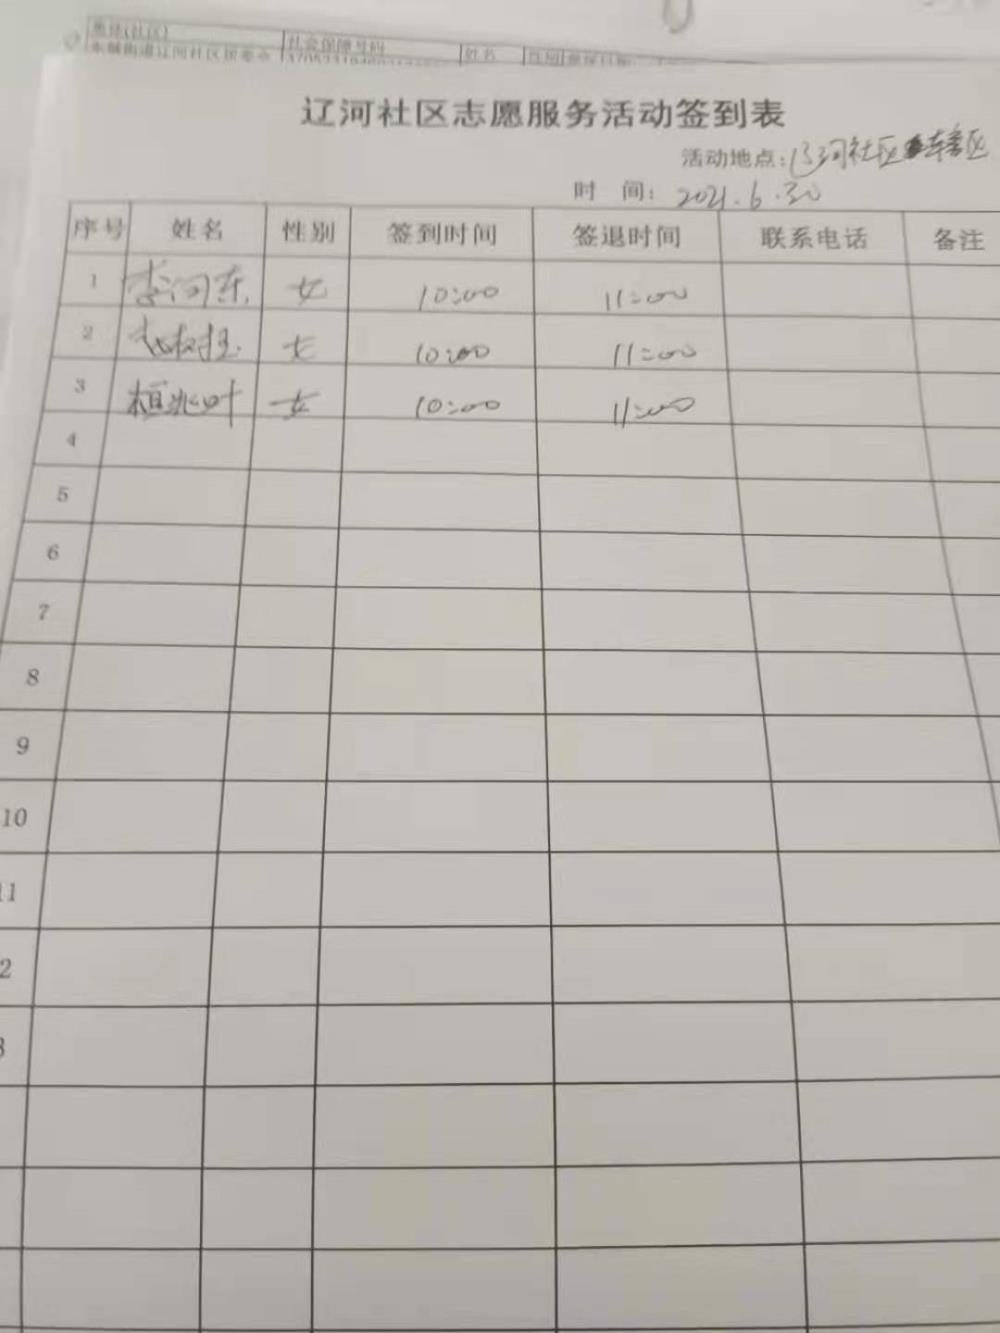 姓名
辽河社区志愿服务活动签到表
活动地点：辽河社区辖区
时 间：2021.6.30
序号 姓名 性别 签到时间 签退时间 联系电话 备注
1 李河东 女 10:00 11:00
2 女 10:00 11:00
3 桓兆叶 女 10:00 11:00
4
5
6
7
8
9
10
11
2
3